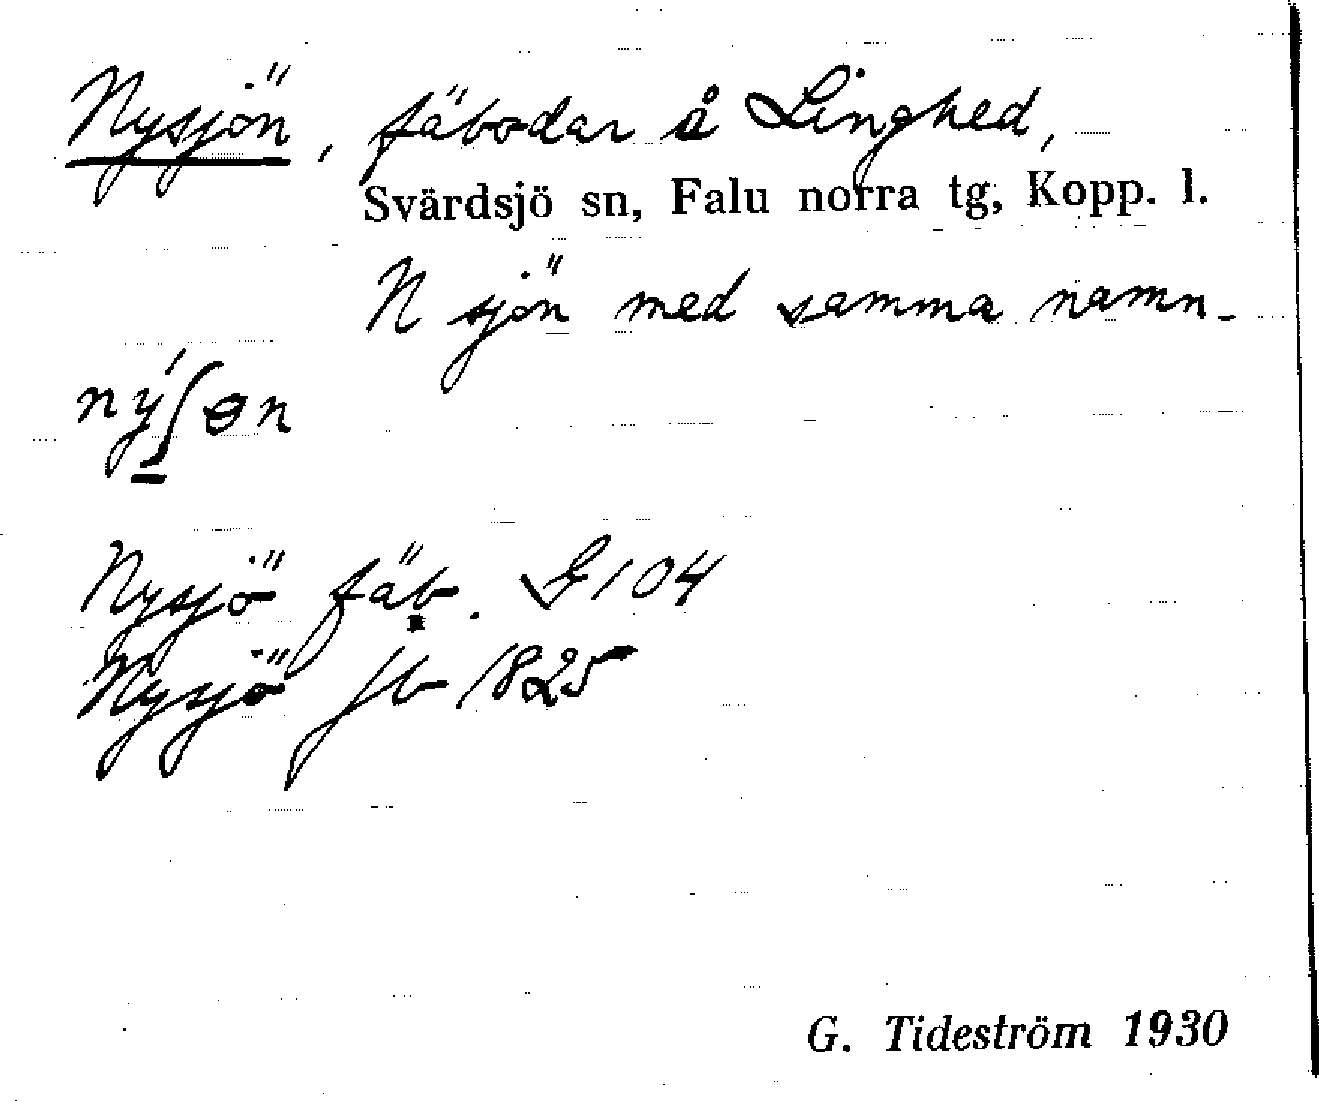 Nysjön, fäbodar å Linghed,
Svärdsjö sn, Falu norra tg, Kopp. l.
N sjön med samma namn.
ný̱ʃɵn
Nysjö fäb. G 104
Nysjö jb 1825
G. Tideström 1930